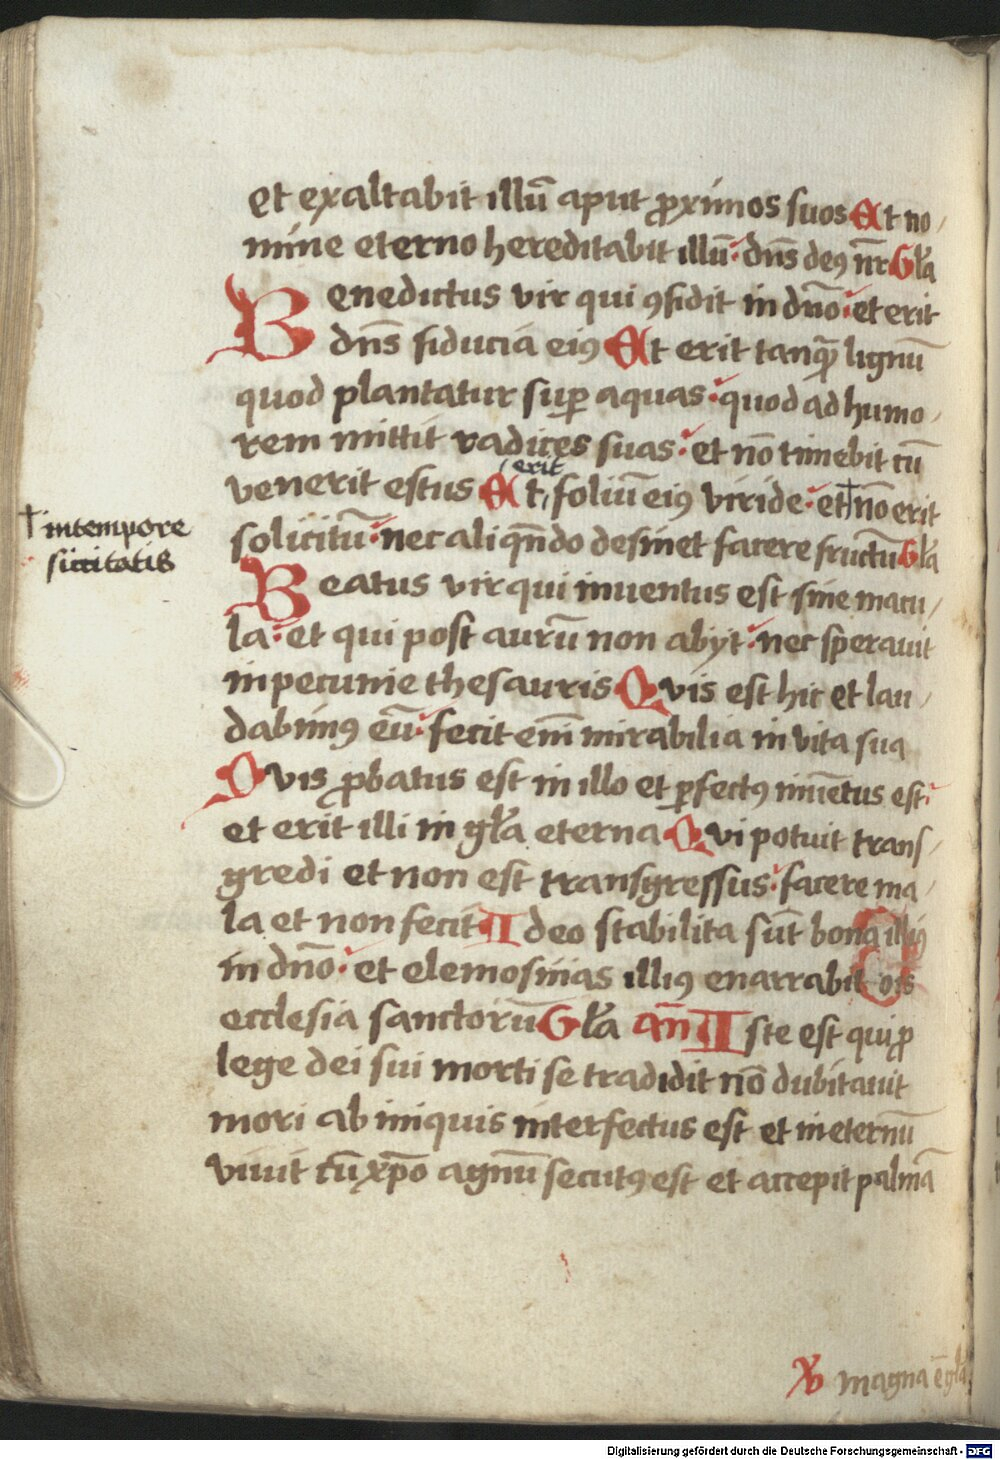 et exaltabit illū aput ꝓximos suos Et no/
mine eterno hereditabit illū· dn̄s deꝰ nr̄ Gl̄a
Benedictus vir qui ꝯfidit in dn̄o· et erit
dn̄s fiducia eiꝰ Et erit tanqᷓ lignū
quod plantatur suꝑ aquas· quod ad humo/
rem mittit radices suas· et nō timebit cū
erit
venerit estus Et, foliū eiꝰ viride· et † nō erit
† in tempore
siccitatis
solicitū· nec aliqn̄do desinet facere fructū Gl̄a
Beatus vir qui inuentus est sine macu/
la· et qui post aurū non abyt· nec sperauit
in pecunie thesauris Qvis est hic et lau/
dabimꝰ eū· fecit em̄ mirabilia in vita sua
Qvis ꝓbatus est in illo et ꝑfectꝰ inuētus est·
et erit illi in gl̄a eterna Qvi potuit trans/
gredi et non est transgressus· facere ma/
la et non fecit Ideo stabilita sūt bona illiꝰ
in dn̄o· et elemosinas illiꝰ enarrabit ōis
ecclesia sanctorū Gl̄a an̄ Iste est qui ꝓ
lege dei sui morti se tradidit nō dubitauit
mori ab iniquis interfectus est et in eternū
viuit cū xp̄o agnū secutꝰ est et accepit palmā
magna ē gl̄a
Digitalisierung gefördert durch die Deutsche Forschungsgemeinschaft - DFG